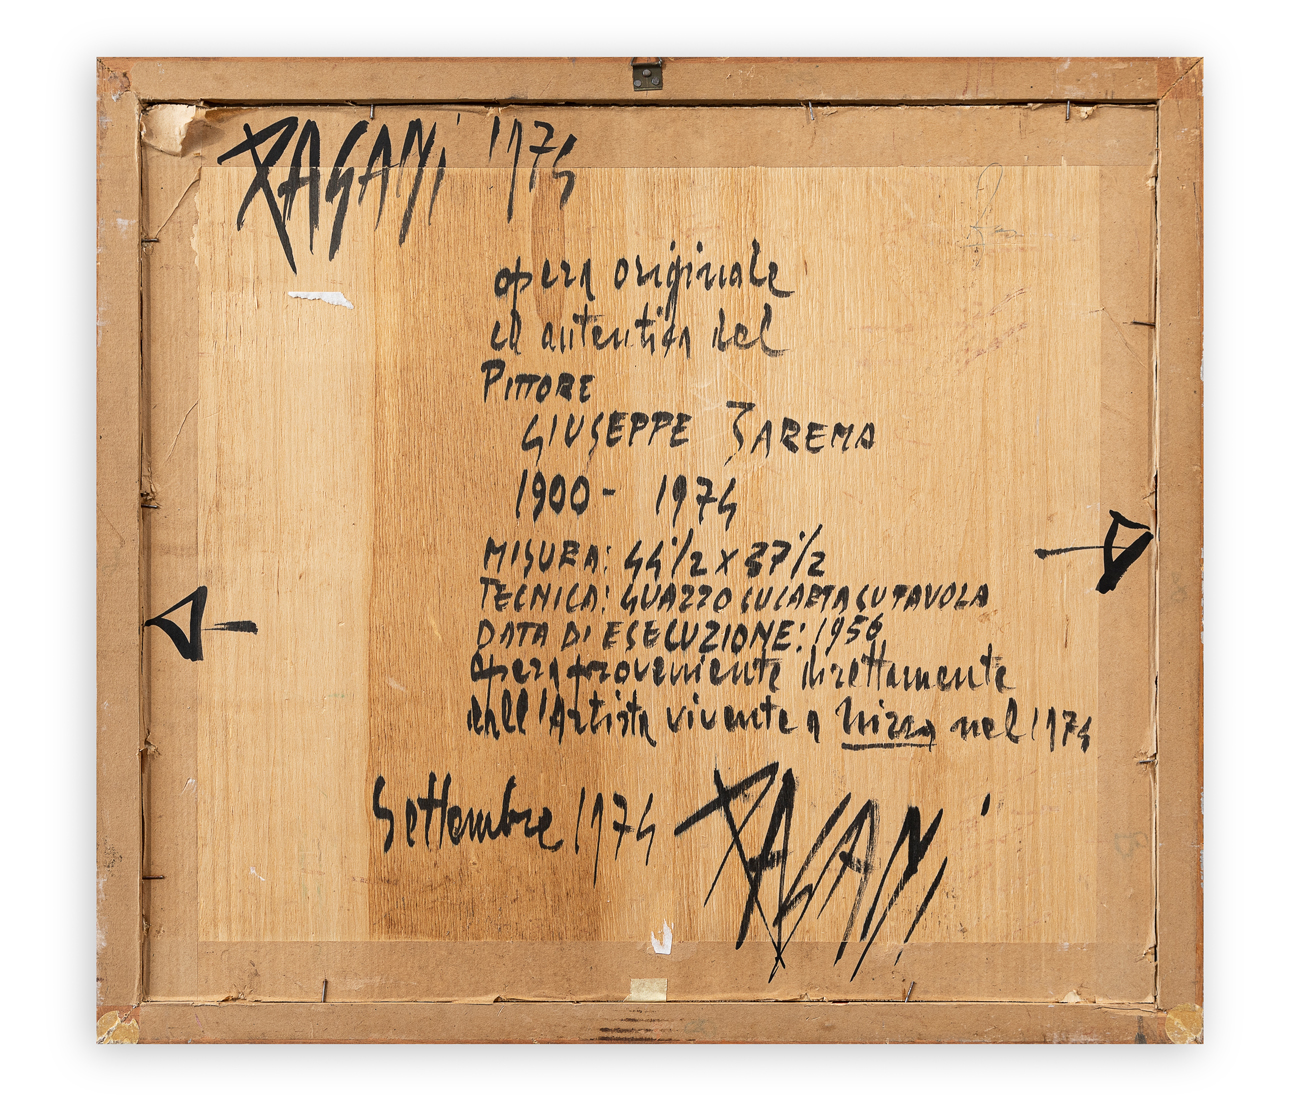 PAGANI 1974
opera originale
ed autentica del
PITTORE
GIUSEPPE ZAREMA
1900 - 1974
MISURA: 44 1/2 X 37 1/2
TECNICA: GUAZZO SU CARTA SU TAVOLA
DATA DI ESECUZIONE: 1956
opera proveniente direttamente
dall'Artista vivente a Nizza nel 1974
Settembre 1974 PAGANI